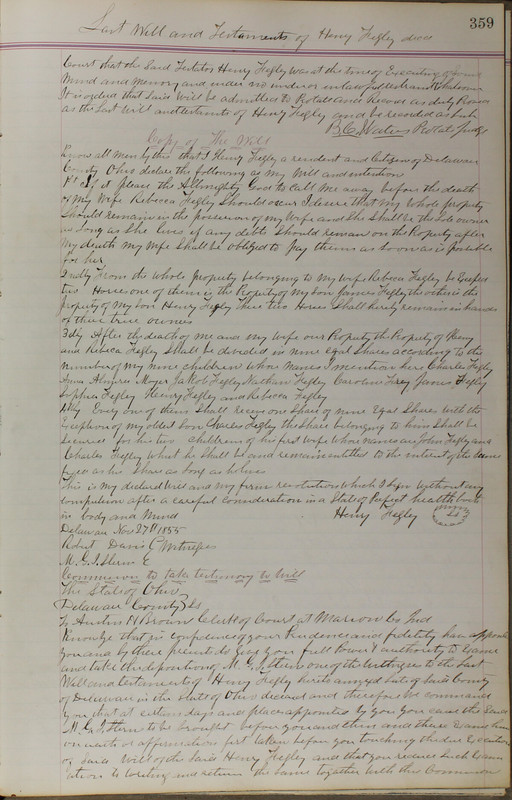 359
Last Will and Testaments of Henry Fegley decd
Court that the Said Testator Henry Fegley was at the time of Executing of Sound
Mind and Memory and under no
It is ordered that Said Will be admitted to Probate and is Record as duly Proved
as the Last Will and Testament of Henry Fegley and be recorded as Such
B. C. Waters Probat Judge
Copy of The Will
Know all men by this that I Henry Fegley a resident and Citizen of Delaware
County Ohio declare the following as my Will and intention
1st If it please the Allmighty God to Call me away before the death
of My Wife Rebecca Fegley Should occur I desire that my Whole property
Should remain in the possession of my Wife and She Shall be the Sole owner
as long as She lives if any debts Should remain on the Property after
My death My Wife Shall be obliged to pay them as soon as is possible
for her
2ndly From the whole property belonging to my wife Rebeca Fegley be Excepted
two Horses one of them is the Property of My Son James Fegley the other is the
property of My Son Henry Fegley These two Horses Shall remain in hands
of their true owners
3dly After the death of me and my Wife our Property the Property of Henry
and Rebeca Fegley Shall be divided in nine Egal Shares according to the
number of my nine children whose Names I mention here Charles Fegley
Anna Moyer Jakob Fegley Nathan Fegley Caroline Frey James Fegley
Sophia Fegley Henry Fegley and Rebecca Fegley
4thly Every one of them Shall receive one Share of nine Egal Shares With the
Exception of my oldest Son Charles Fegley the Share belonging to him Shall be
Secured for his two childrens of his first wife whose names are John Fegley and
Charles Fegley What he Shall be and remain entitled to the interest of the
as his Share as long as he lives
This is my declared Will and my firm resolution which I Sign Without any
compulsion after a careful consideration in a State of Perfect health both
in body and Mind
Henry Fegley
Delaware Nov 27th 1855
Robert Davis Witnesses
M. G. I. Stern
Commission to take testimony to Will
The State of Ohio
Delaware County Ss
To Austin H Brown Clerk of Court at Marion Co Ind
Know ye that in confidence of your Prudence and fidelity have appoint
you and by these presents do give you full Power & authority to Exame
and take the deposition of M. G. I. Stern one of the Witnesses to the Last
Will and testament of Henry Fegley hereto annexed Late of Said County
of Delaware in the State of Ohio deceased and therefore We command
you that at certain days and place appointed by you you cause the Said
M. G. I. Stern to be brought before you and then and there Examin him
on oath or affirmation first taken before you touching the due Execution
of Said Will of the Said Henry Fegley and that you reduce Such Exami
ation to Writing and return the Same together With this Commission